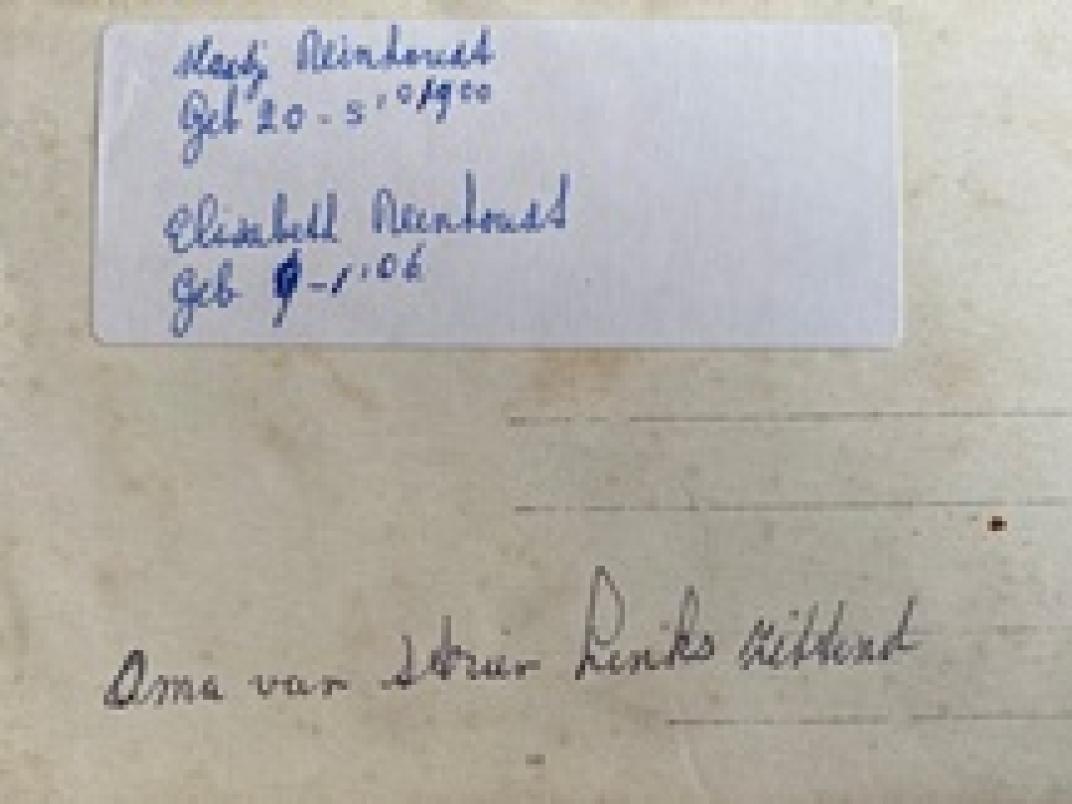 Reinhoudt
Geb 20-5'01900
Elisabeth Reinhoudt
Geb -1'06
Oma van Links zittend